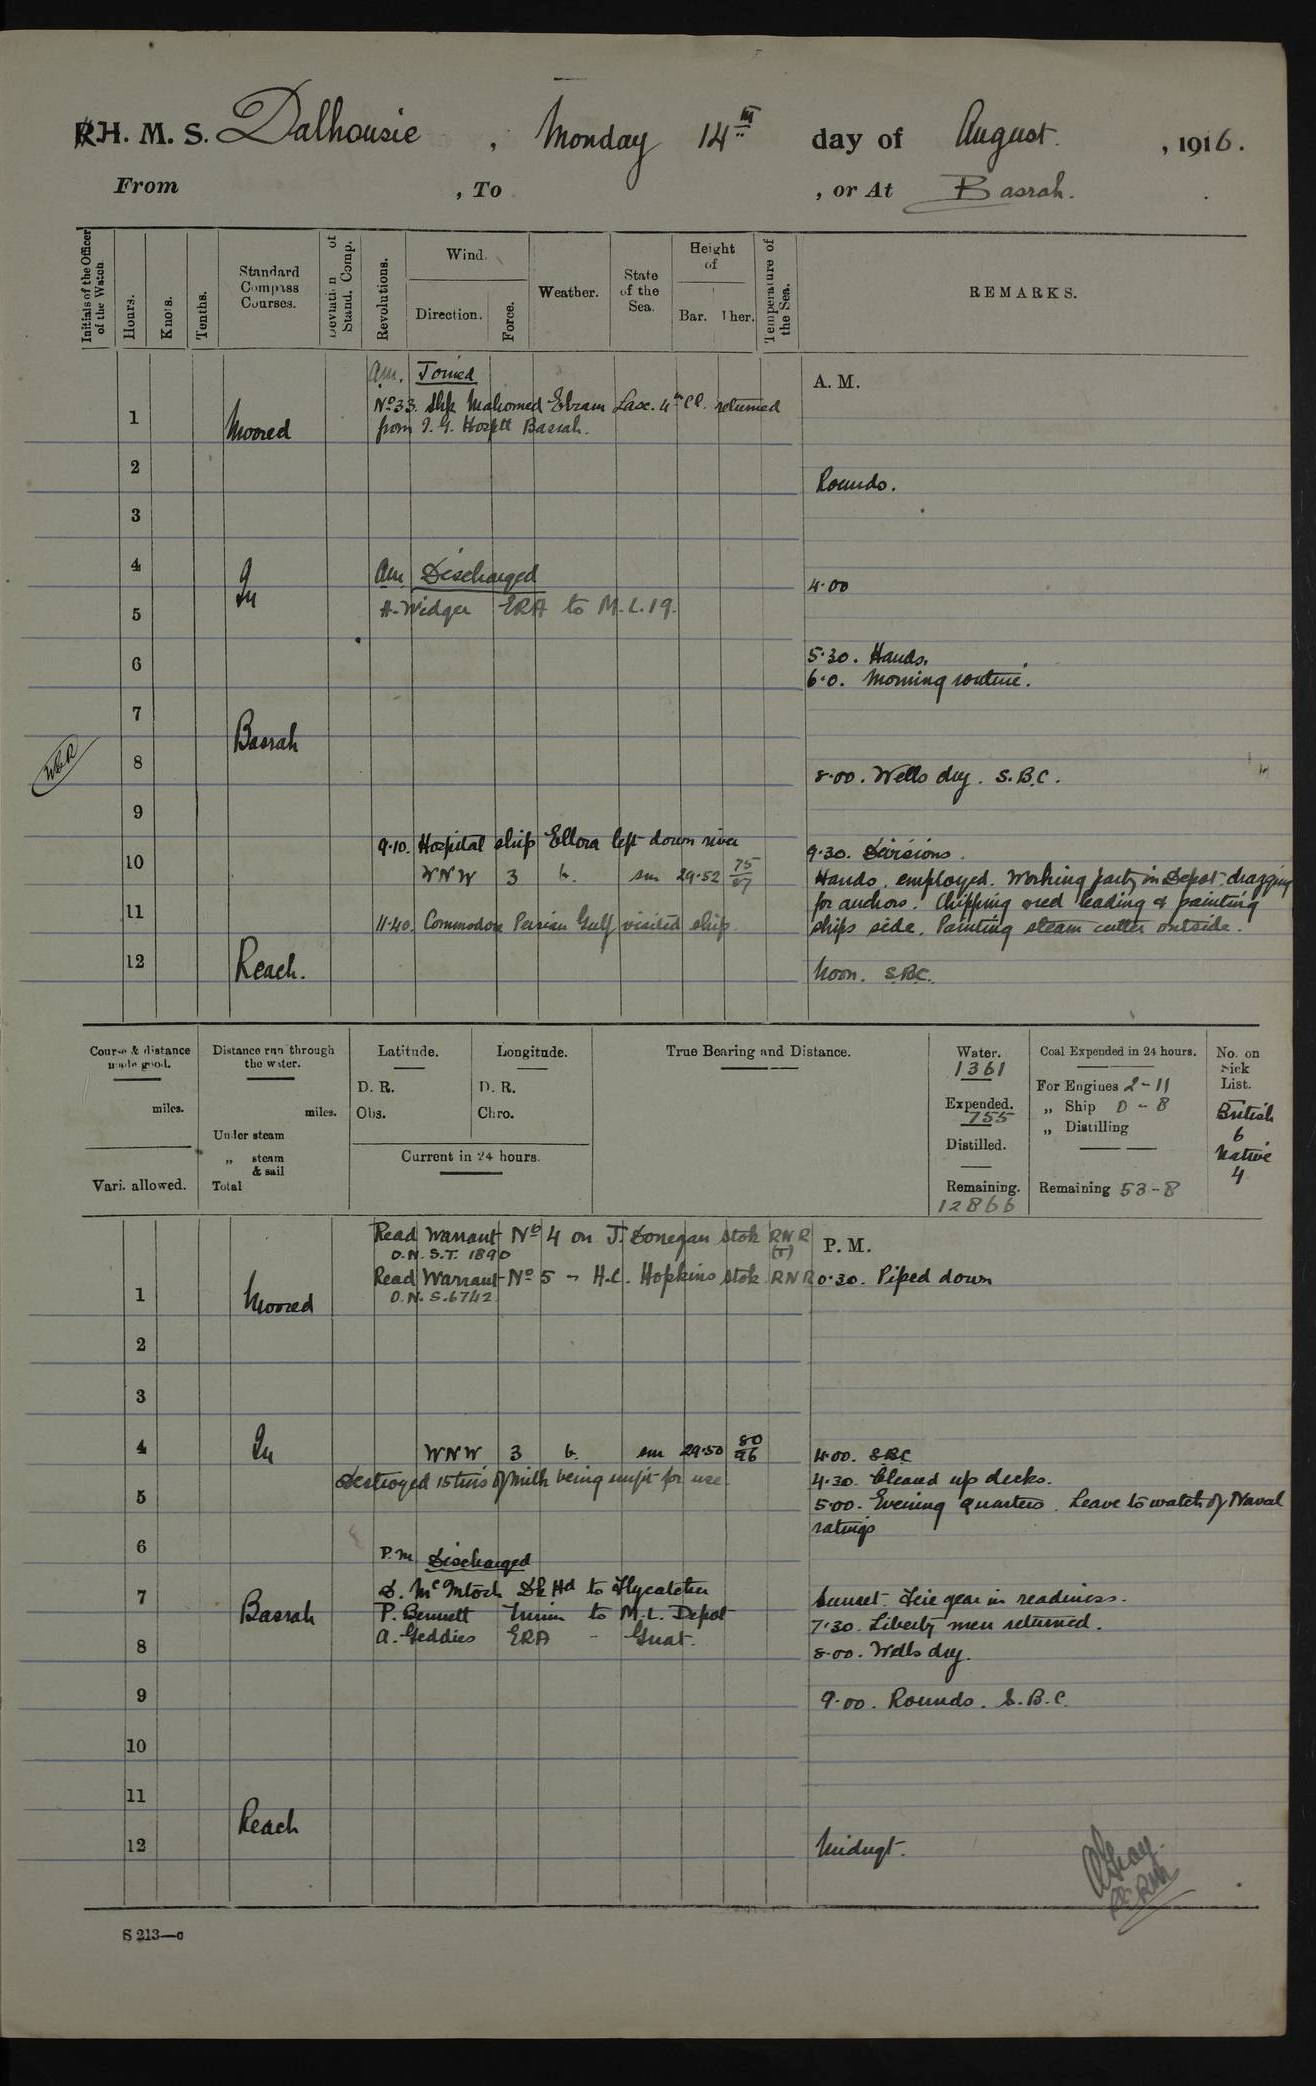 R.I.H. M. S. Dalhousie , Monday 14th day of August , 1916.
From , To , or At Basrah.
Initials of the Officer of the Watch
Hours.
Knots.
Tenths.
Standard Compass Courses.
Deviation of Stand. Comp.
Revolutions.
Wind.
Direction.
Force.
Weather.
State of the Sea.
Height of
Bar. Ther.
Temperature of the Sea.
REMARKS.
am. Joined
A. M.
No 33. Shk Mahomed Ebram Lasc. 4th Cl. returned
1 Moored from I. G. Hosptl Basrah.
2
Rounds.
3
4 am Discharged
4.00
In
5 A. Widger ERA to M.L.19.
5.30. Hands.
6
6.0. Morning routine.
7
Basrah
8
8.00. Wells dry. S.B.C.
9
9.10. Hospital ship Ellora left down river
9.30. Divisions.
10 WNW 3 b. sm 29.52 75/87
Hands employed. Working party in Depot dragging
11 for anchors. Chipping red leading & painting
11.40. Commodore Persian Gulf visited ship.
ships side. Painting steam cutter outside.
12 Reach.
Noon. SBC.
Course & distance made good.
miles.
Vari. allowed.
Distance run through the water.
miles.
Under steam
„ steam & sail
Total
Latitude.
D. R.
Obs.
Longitude.
D. R.
Chro.
Current in 24 hours.
True Bearing and Distance.
Water.
1361
Expended.
755
Distilled.
Remaining.
12866
Coal Expended in 24 hours.
For Engines 2-11
„ Ship 0-8
„ Distilling
Remaining 53-8
No. on Sick List.
British
6
Native
4
Read Warrant No 4 on J. Donegan Stok RNR
(T)
P. M.
O.N. S.T. 1890
Read Warrant No 5 - H.C. Hopkins Stok RNR
0.30. Piped down
O.N. S.6742
1 Moored
2
3
4 In WNW 3 b. sm 29.50 80/96
4.00. SBC
Destroyed 15 tins of milk being unfit for use.
4.30. Cleared up decks.
5
5.00. Evening quarters. Leave to watch of Naval
ratings
6
P.m Discharged
7 D. McIntosh Dk Hd to Flycatcher
Sunset. Fire gear in readiness.
Basrah P. Bennett to M.L. Depot
7.30. Liberty men returned.
8 A. Geddies ERA - Gnat.
8.00. Wells dry.
9
9.00. Rounds. S.B.C.
10
11
Reach
12
Midngt.
S 213—c